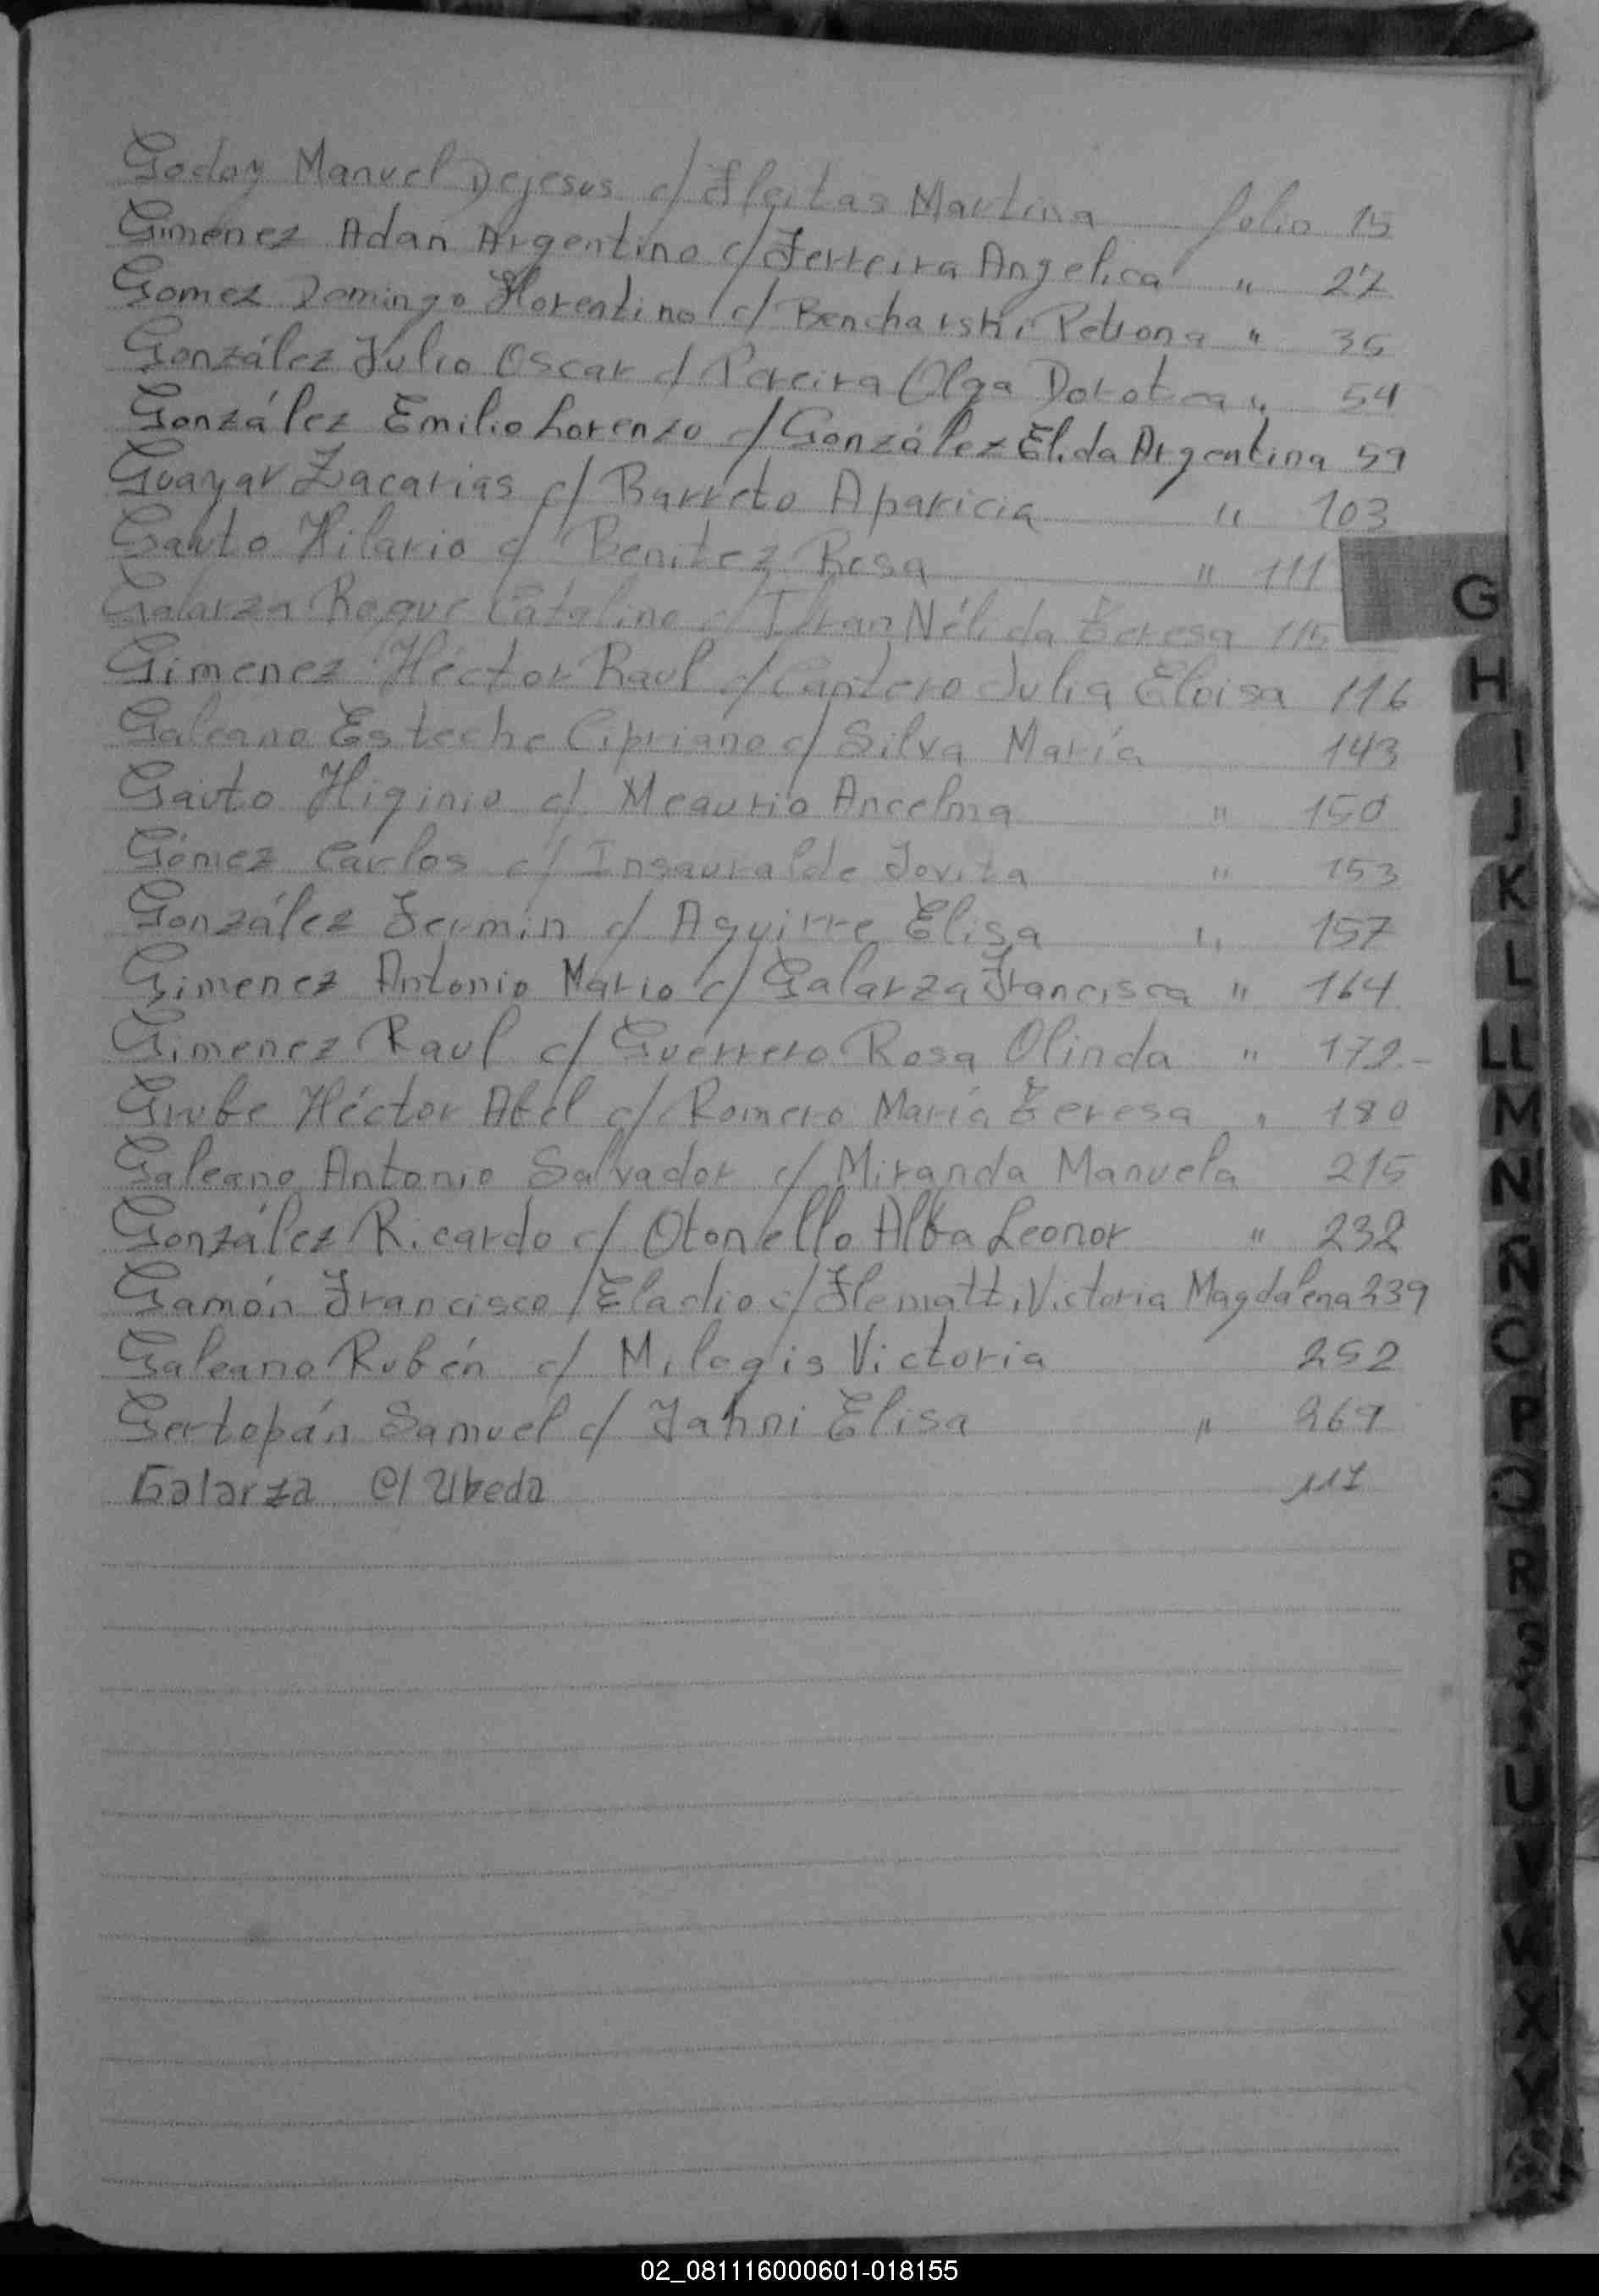 Godoy Manuel Dejesus c/ Fleitas Martina folio 15
Gimenez Adan Argentino c/ Ferreira Angelica " 27
Gomez Domingo Florentino c/ Bencharski Petrona " 35
González Julio Oscar c/ Pereira Olga Dorotea " 54
González Emilio Lorenzo c/ González Elida Argentina 59
Guayar Zacarias c/ Barreto Aparicia " 103
Gauto Hilario c/ Benitez Rosa " 111
Galarza Roque Catalino c/ Nélida Teresa 115
Gimenez Héctor Raul c/ Cantero Julia Eloisa 116
Galeano Esteche Cipriano c/ Silva María 143
Gauto Higinio c/ Meaurio Ancelma " 150
Gómez Carlos c/ Insauralde Jovita " 153
González Fermin c/ Aguirre Elisa " 157
Gimenez Antonio Mario c/ Galarza Francisca " 164
Gimenez Raul c/ Guerrero Rosa Olinda " 172-
Grube Héctor Abel c/ Romero María Teresa " 180
Galeano Antonio Salvador c/ Miranda Manuela 215
González Ricardo c/ Otonello Alba Leonor " 232
Gamón Francisco Eladio c/ Flematti Victoria Magdalena 239
Galeano Rubén c/ Milagis Victoria 252
Gertopán Samuel c/ Jahni Elisa " 269
Galarza c/ Ubeda 117
G
H
I
J
K
L
LL
M
N
Ñ
O
P
Q
R
S
U
V
W
X
Y
02_081116000601-018155